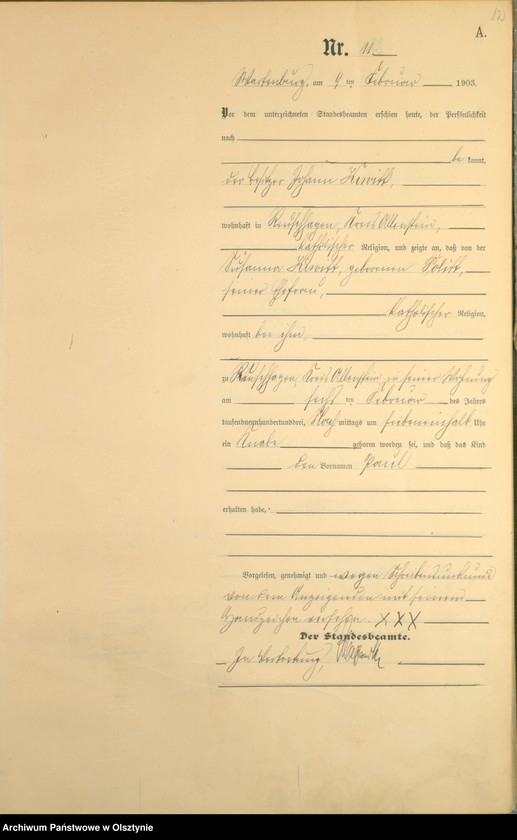 12
A.
Nr. 11
Wartenburg, am 9 ten Februar 1903.
Vor dem unterzeichneten Standesbeamten erschien heute, der Persönlichkeit
nach
be kannt,
der Besitzer Johann
wohnhaft in Reuschhagen, Kreis Allenstein,
katholischer Religion, und zeigte an, daß von der
Susanna geborenen
seiner Ehefrau,
katholischer Religion,
wohnhaft bei ihm
zu Reuschhagen, Kreis Allenstein, in seiner Wohnung
am sechs ten Februar des Jahres
tausendneunhundertunddrei, Nach mittags um siebeneinhalb Uhr
ein Knabe geboren worden sei, und daß das Kind
den Vornamen Paul
erhalten habe,
Vorgelesen, genehmigt und wegen Schreibensunkunde
von dem Anzeigenden mit seinem
Handzeichen versehen. XXX
Der Standesbeamte.
In Vertretung,
Archiwum Państwowe w Olsztynie